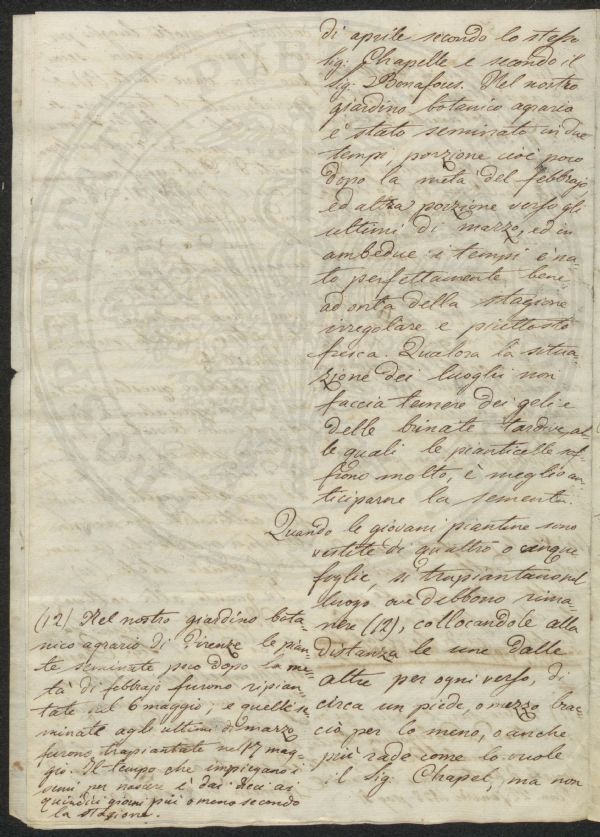 di aprile secondo lo stesso
Sig: Chapelle e secondo il
Sig: Bonafous. Nel nostro
giardino botanico agrario
è stato seminato in due
tempi, porzione cioè poco
dopo la metà del febbrajo
ed altra porzione verso gli
ultimi di marzo, ed in
ambedue i tempi è na-
to perfettamente bene
ad onta della stagione
irregolare e piuttosto
fresca. Qualora la situa-
zione dei luoghi non
faccia temere dei geli e
delle brinate tardive, al-
le quali le pianticelle sof
frono molto, è meglio an-
ticiparne la sementa.
Quando le giovani piantine sono
vestite di quattro o cinque
foglie, si trapiantano nel
luogo ove debbono rima-
nere (12), collocandole alla
distanza le une dalle
altre per ogni verso, di
circa un piede, o mezzo brac-
cio per lo meno, o anche
più rade come lo vuole
il Sig: Chapel, ma non
(12) Nel nostro giardino bota
nico agrario di Firenze le pian
te seminate poco dopo la me-
tà di febbrajo furono ripian-
tate nel 6 maggio; e quelle se
minate agli ultimi di marzo
furono trapiantate nel 17 mag-
gio. Il tempo che impiegano i
semi per nascere è dai dieci ai
quindici giorni più o meno secondo
la stagione.
PVB